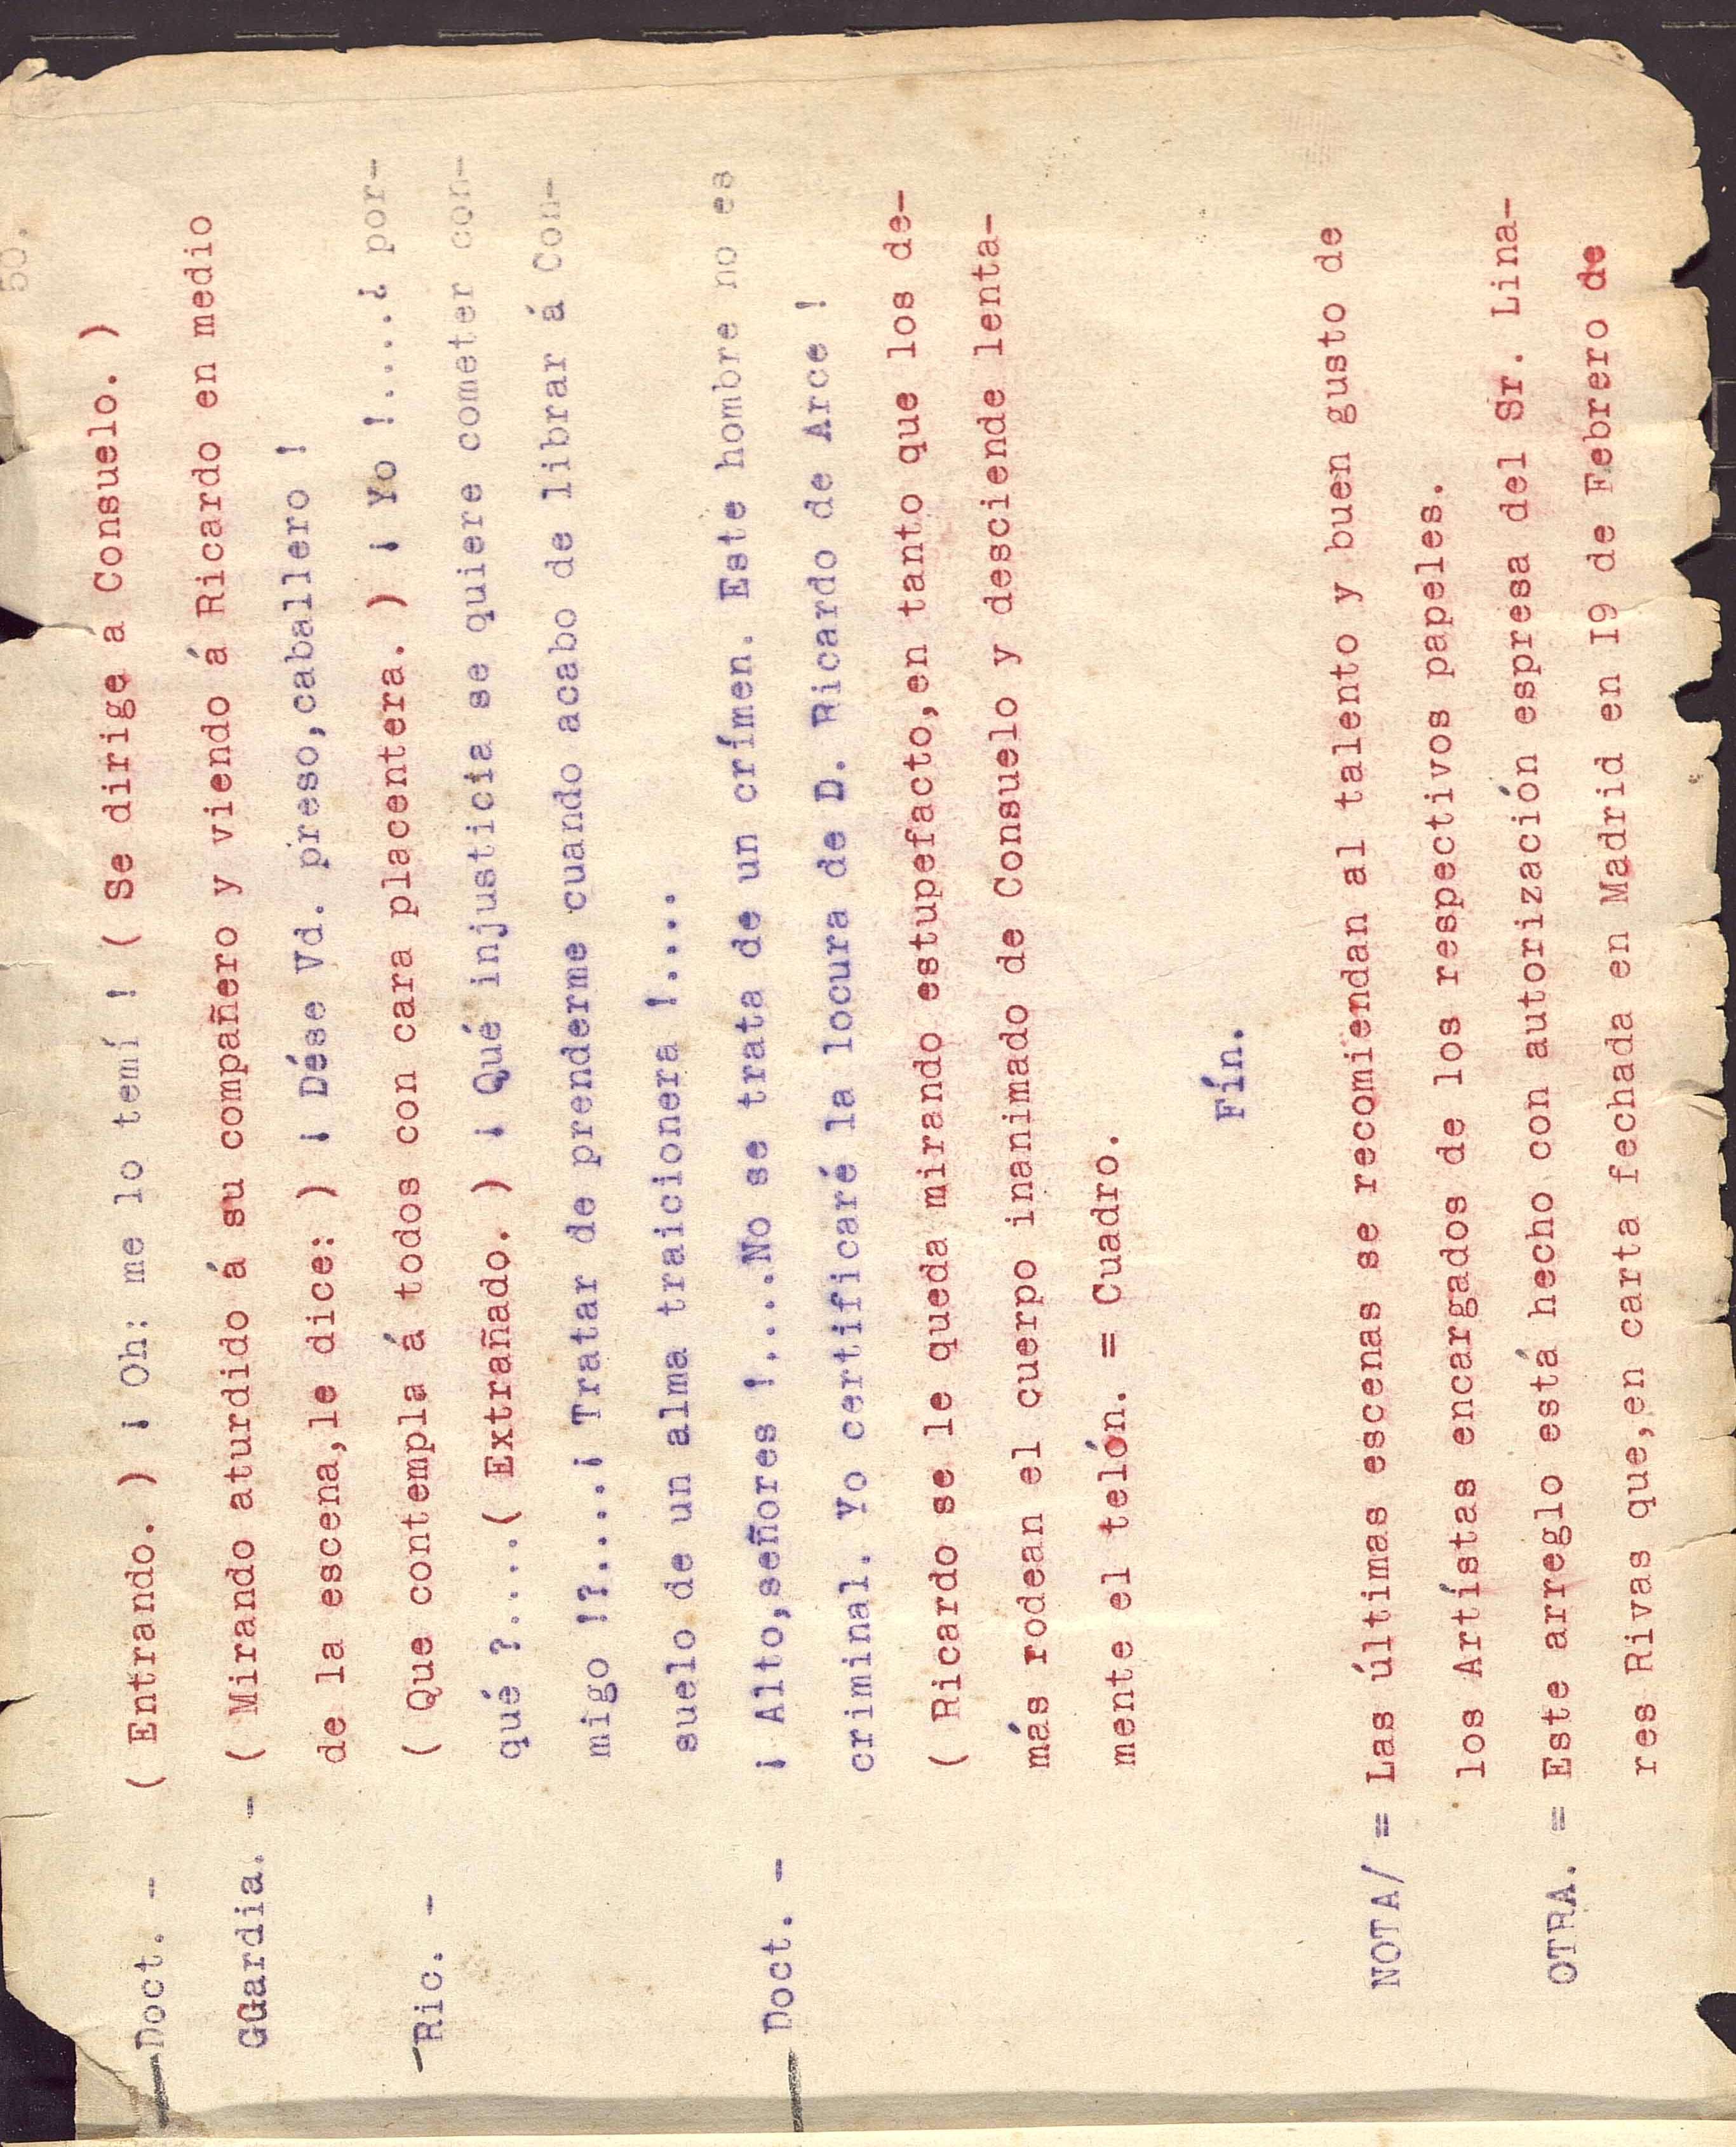 50.
Doct. - ( Entrando. ) ¡ Oh: me lo temí ! ( Se dirige a Consuelo. )
GGardia. - ( Mirando aturdido á su compañero y viendo á Ricardo en medio
de la escena,le dice: ) ¡ Dése Vd. preso,caballero !
Ric. - ( Que contempla á todos con cara placentera. ) ¡ Yo !....¿ por-
qué ?....( Extrañado. ) ¡ Qué injusticia se quiere cometer con-
migo !?....¡ Tratar de prenderme cuando acabo de librar á Con-
suelo de un alma traicionera !....
Doct. - ¡ Alto,señores !....No se trata de un crímen. Este hombre no es
criminal. Yo certificaré la locura de D. Ricardo de Arce !
( Ricardo se le queda mirando estupefacto,en tanto que los de-
más rodean el cuerpo inanimado de Consuelo y desciende lenta-
mente el telón. = Cuadro.
Fín.
NOTA/ = Las últimas escenas se recomiendan al talento y buen gusto de
los Artístas encargados de los respectivos papeles.
OTRA. = Este arreglo está hecho con autorización espresa del Sr. Lina-
res Rivas que,en carta fechada en Madrid en I9 de Febrero de